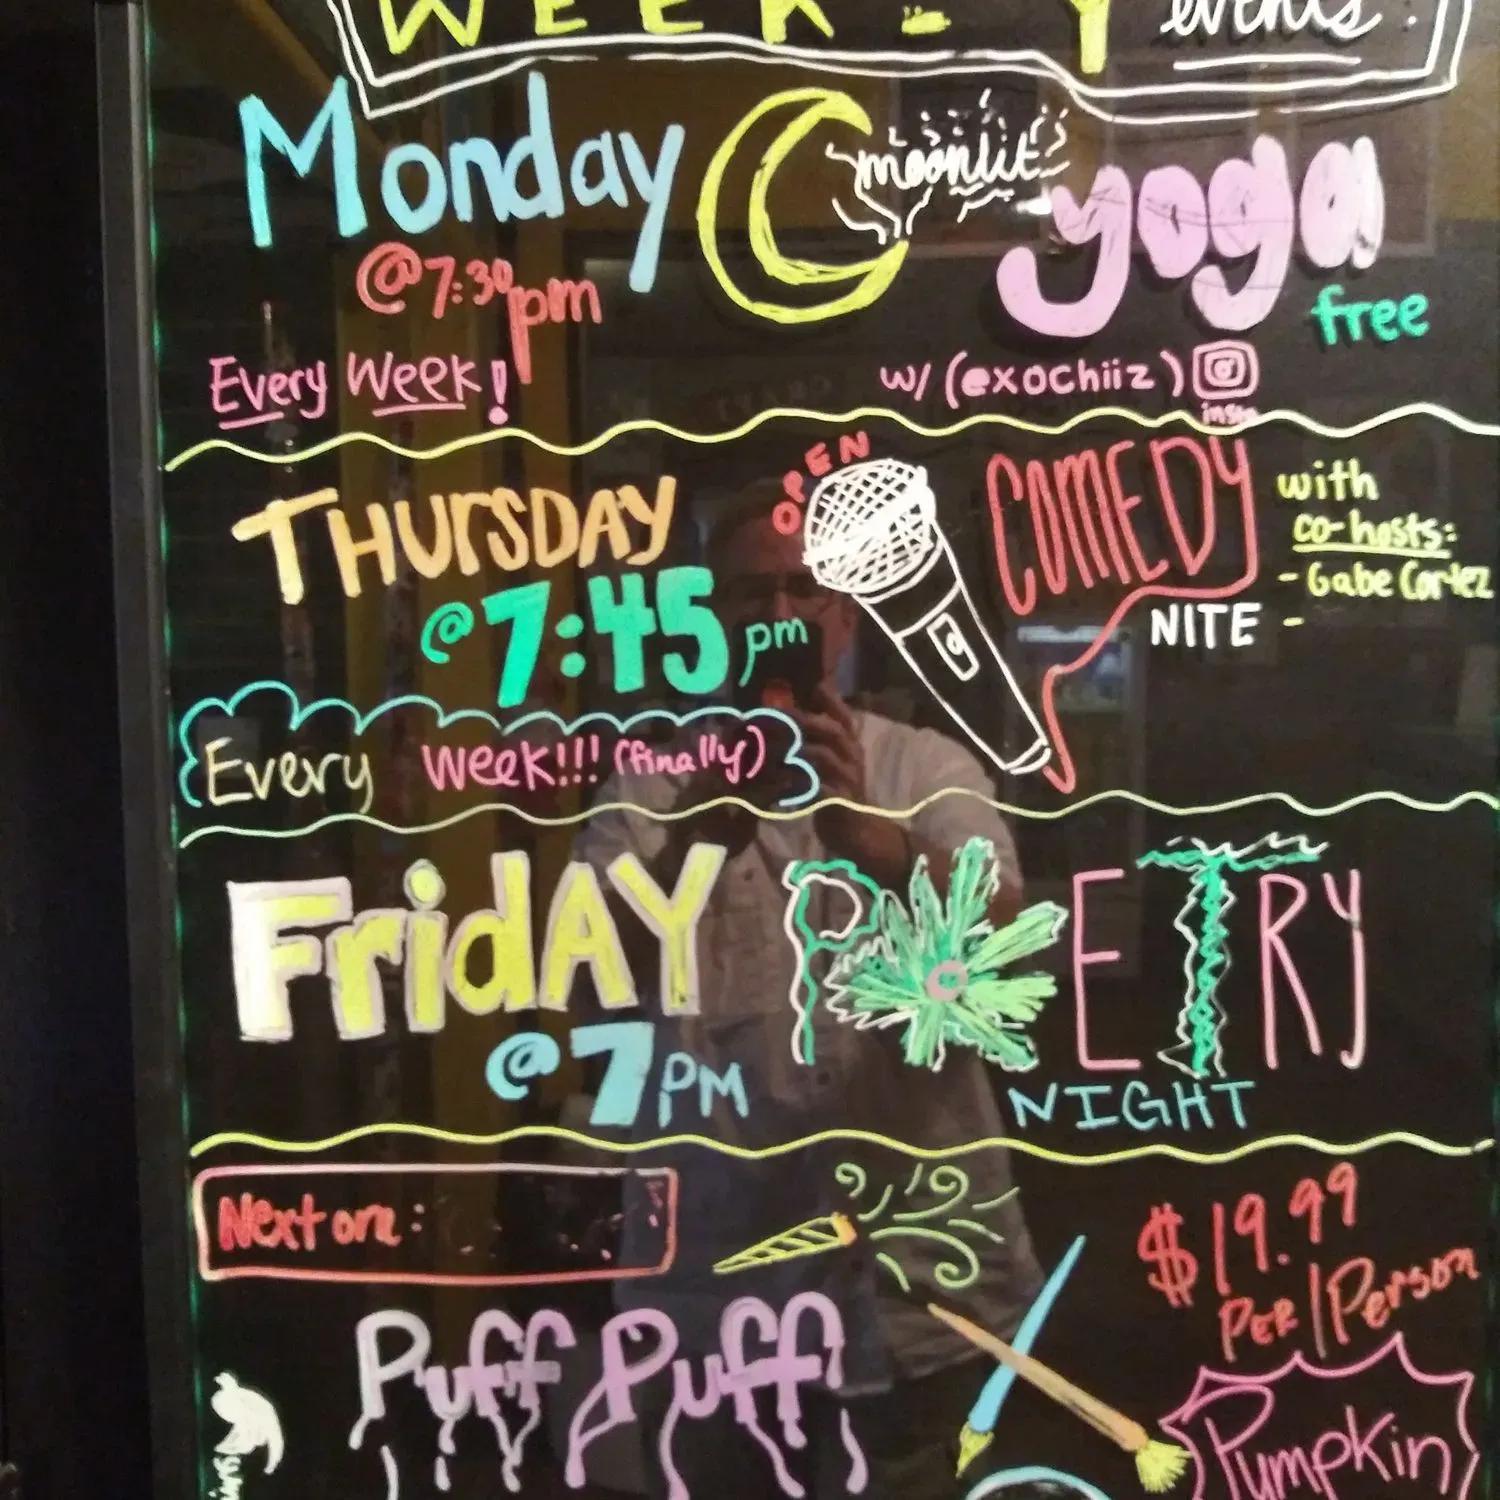 WEEKLY events!
Monday moonlit yoga
@7:30pm free
Every Week! w/ (@xochiiz)
insta
THURSDAY OPEN COMEDY NITE
@7:45pm
with
co-hosts:
- Gabe Cortez
-
Every Week!!! (finally)
FridAY POETRY
@7PM NIGHT
Next one:
$19.99
Per/Person
Puff Puff
Pumpkin